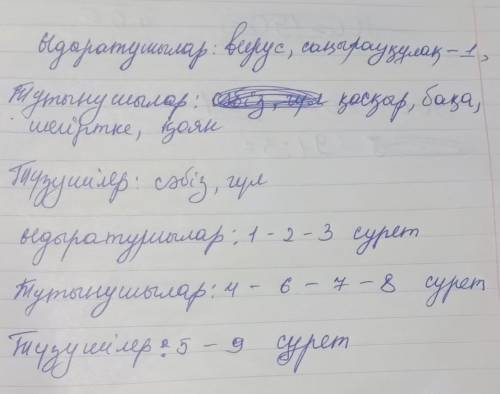 ыдыратушылар: вирус, саңырауқұлақ - 1,
Тұтынушылар: қасқыр, бақа,
шегіртке, қоян
Түзушілер: сәбіз, гүл
ыдыратушылар: 1 - 2 - 3 сурет
Тұтынушылар: 4 - 6 - 7 - 8 сурет
Түзушілер: 5 - 9 сурет